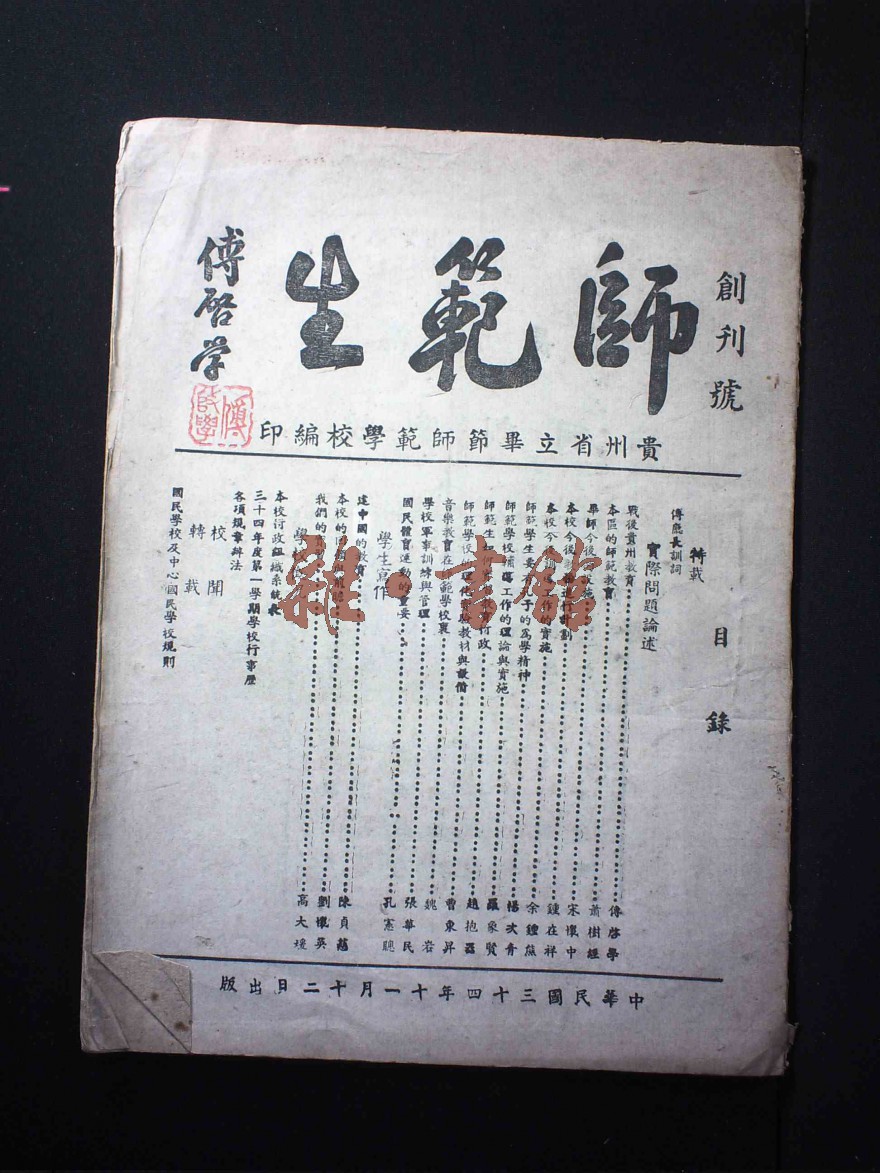 創刊號
師範生
傅啓学
傅啟學
貴州省立畢節師範學校編印
目錄
特載
傅廳長訓詞
實際問題論述
戰後貴州教育 傅啓學
本區的師範教育 蕭樹經
畢師今後 施 宋懷中
本校今後 進行計劃 鍾在祥
本校今後訓導工作的實施 余鍾
師範學生要有 子的爲學精神 楊次青
師範學校輔導工作的理論與實施 羅象賢
師範生如何 教育行政 趙抱
師範學校 理化實驗教材與設備 曹東昇
音樂教育在師範學校裏 魏岩
學校軍事訓練與管理 張華民
國民體育運動的重要 孔憲聰
學生寫作
建中國的教育 陳貞慈
本校的 劉懷英
我們的 高大嫒
學校
本校行政組織系統表
三十四年度第一學期學校行事歷
各項規章辦法
校聞
轉載
國民學校及中心國民學校規則
中華民國三十四年十一月十二日出版
雜·書館